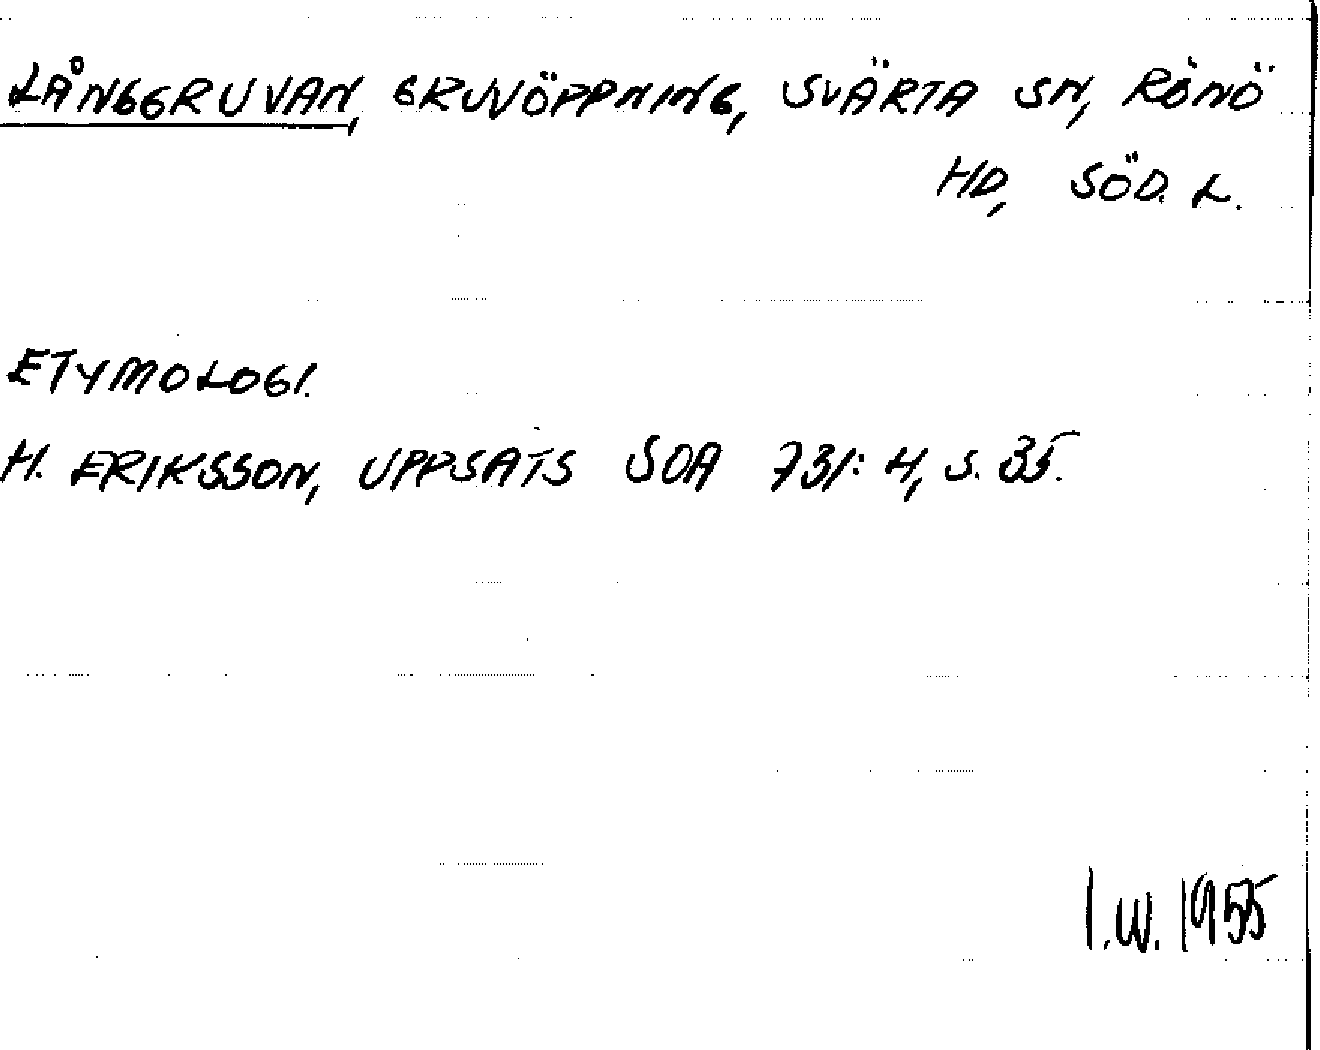 LÅNGGRUVAN, GRUVÖPPNING, SVÄRTA SN, RÖNÖ
HD, SÖD. L.
ETYMOLOGI.
H. ERIKSSON, UPPSATS SOA 731: 4, S. 35.
I.W. 1955